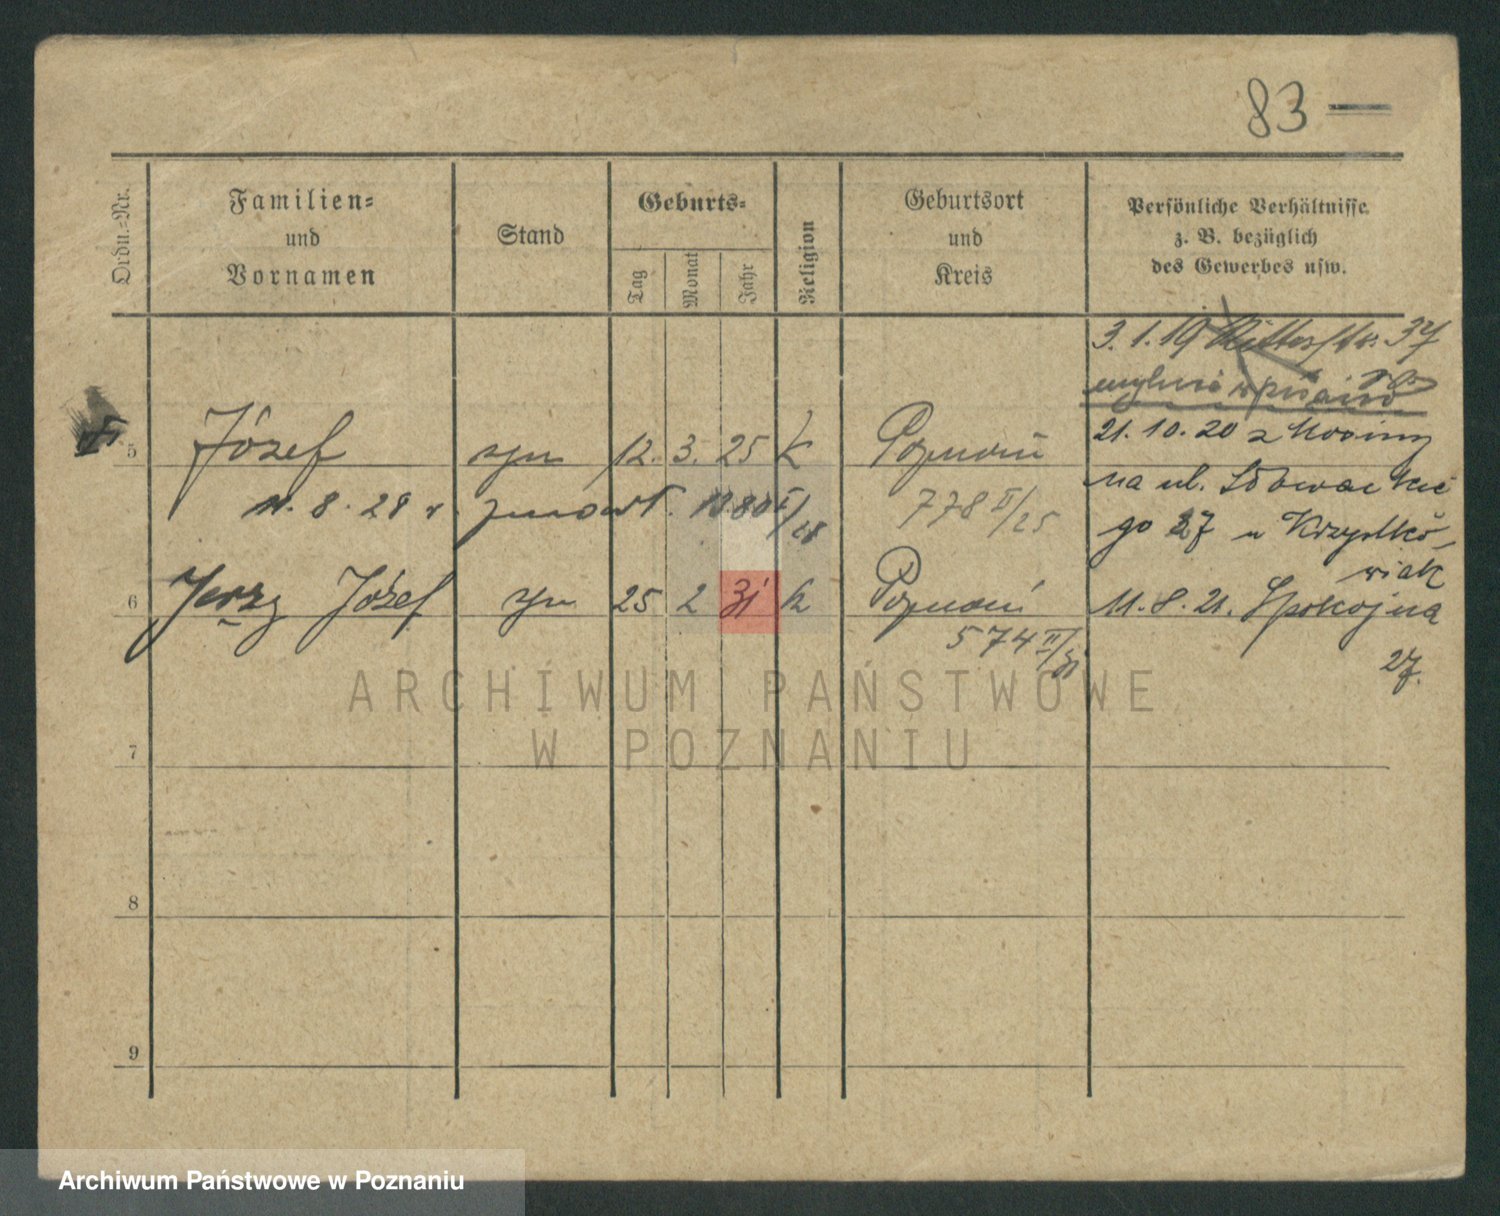 83
Ordn.-Nr.
Familien-
und
Vornamen
Stand
Geburts-
Tag
Monat
Jahr
Religion
Geburtsort
und
Kreis
Persönliche Verhältnisse
z. B. bezüglich
des Gewerbes usw.
3. 1. 19 Ritterstr. 37
mylnie wpisano
5 Józef syn 12. 3. 25 k Poznań
21. 10. 20 z Mosiny
na ul. Słowackie
11. 8. 28 r. 778 II/25
go 27 u Krzystko-
wiak
6 Jerzy Józef syn 25 2 31 k Poznań
574 II/31
11. 8. 21. Spokojna
27.
7
8
9
ARCHIWUM PAŃSTWOWE
W POZNANIU
Archiwum Państwowe w Poznaniu